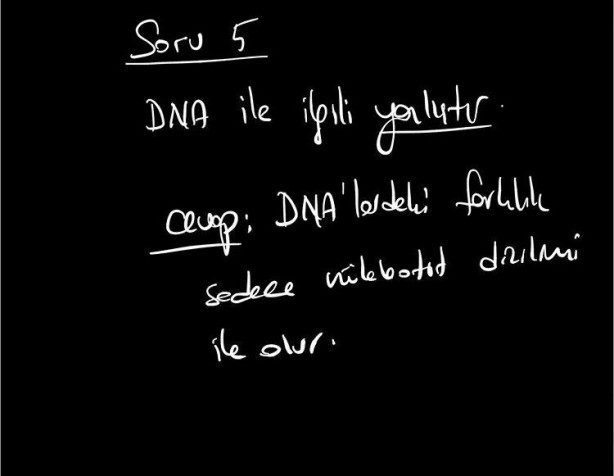 Soru 5
DNA ile ilgili yanlıştır.
Cevap: DNA'lardaki farklılık
sadece nükleotid dizilimi
ile olur.